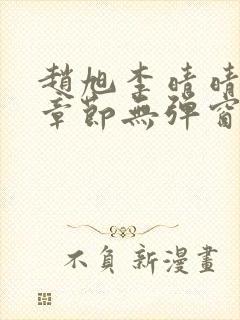 趙旭李晴晴
章節無彈窗
不負新漫畫